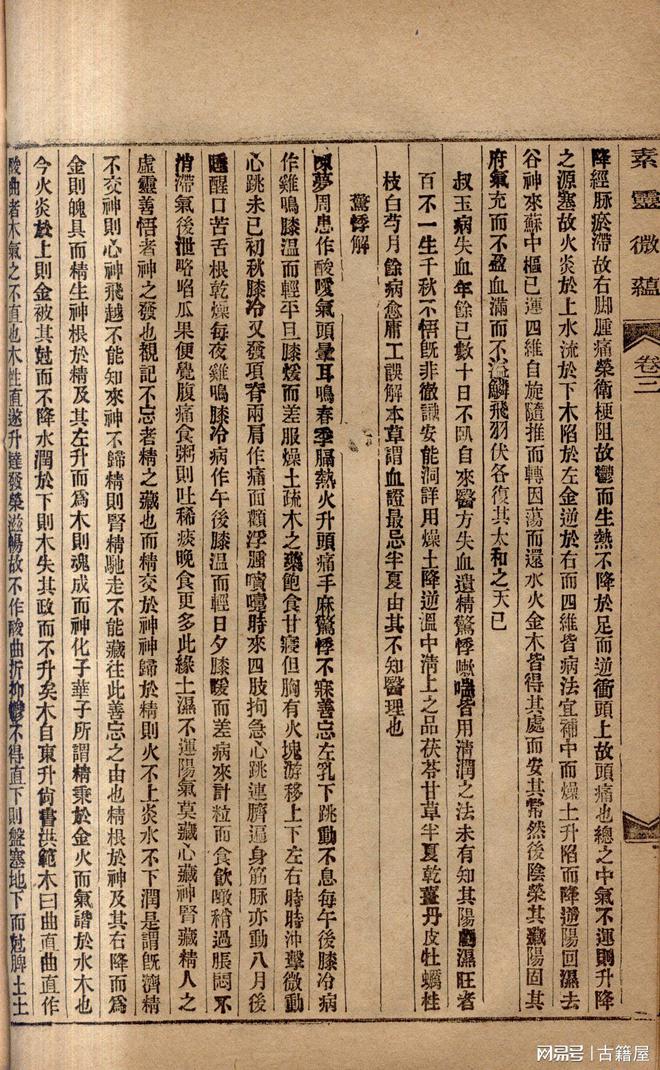 素靈微蘊
卷三
降經脉瘀滯故右脚腫痛榮衛梗阻故鬱而生熱不降於足而逆衝頭上故頭痛也總之中氣不運則升降
之源塞故火炎於上水流於下木陷於左金逆於右而四維皆病法宜補中而燥土升陷而降逆陽回濕去
谷神來蘇中樞已運四維自旋隨推而轉因蕩而還水火金木皆得其處而安其常然後陰榮其藏陽固其
府氣充而不盈血滿而不溢鱗飛羽伏各復其太和之天已
叔玉病失血年餘已數十日不臥自來醫方失血遺精驚悸嗽喘皆用清潤之法未有知其陽虧濕旺者
百不一生千秋不悟既非徹識安能洞詳用燥土降逆溫中清上之品茯苓甘草半夏乾薑丹皮牡蠣桂
枝白芍月餘病愈庸工誤解本草謂血證最忌半夏由其不知醫理也
驚悸解
陳夢周患作酸噯氣頭暈耳鳴春季膈熱火升頭痛手麻驚悸不寐善忘左乳下跳動不息每午後膝冷病
作雞鳴膝溫而輕平旦膝煖而差服燥土疏木之藥飽食甘寢但胸有火塊游移上下左右時時沖擊微動
心跳未已初秋膝冷又發項脊兩肩作痛面顴浮腫噴嚏時來四肢拘急心跳連臍遍身筋脉亦動八月後
睡醒口苦舌根乾燥每夜雞鳴膝冷病作午後膝溫而輕日夕膝暖而差病來計粒而食飲啖稍過脹悶不
消滯氣後泄略啗瓜果便覺腹痛食粥則吐稀痰晚食更多此緣土濕不運陽氣莫藏心藏神腎藏精人之
虛靈善悟者神之發也覩記不忘者精之藏也而精交於神神歸於精則火不上炎水不下潤是謂既濟精
不交神則心神飛越不能知來神不歸精則腎精馳走不能藏往此善忘之由也精根於神及其右降而爲
金則魄具而精生神根於精及其左升而爲木則魂成而神化子華子所謂精秉於金火而氣諧於水木也
今火炎於上則金被其尅而不降水潤於下則木失其政而不升矣木自東升尙書洪範木曰曲直曲直作
酸曲者木氣之不直也木性直遂升達發榮滋暢故不作酸曲折抑鬱不得直下則盤塞地下而尅脾土土
网易号 | 古籍屋